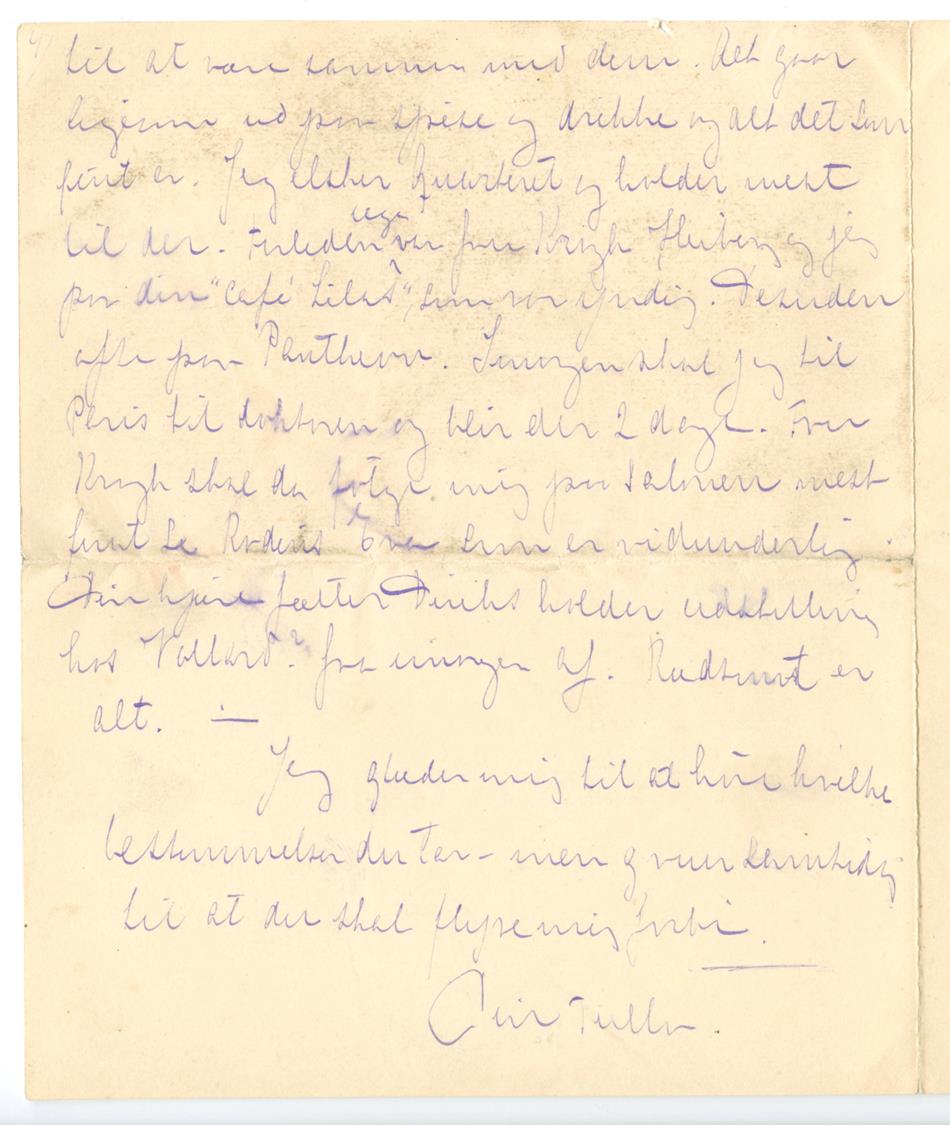 4)
til at være sammen med dem. Det gaar
ligesom ud paa spise og drikke og alt det som
fint er. Jeg elsker Quarteret og holder mest
til der. Forleden var fru Krogh Heiberg og jeg
paa din "Café Lilas", som var yndig. Desuden
ofte paa Pantheon. Imorgen skal jeg til
Paris til doktoren og beir der 2 dage. Fru
Krogh skal da følge mig paa Salonen mest
for at se Rodins Eva som er vidunderlig.
Din kjære fætter Diriks holder udstilling
hos Vollard? fra imorgen af. Rudsmot er
alt. —
Jeg glæder mig til at høre hvilke
bestemmelser du tar – men gruer samtidig
til at du skal flyve mig forbi.
Din Tulla.